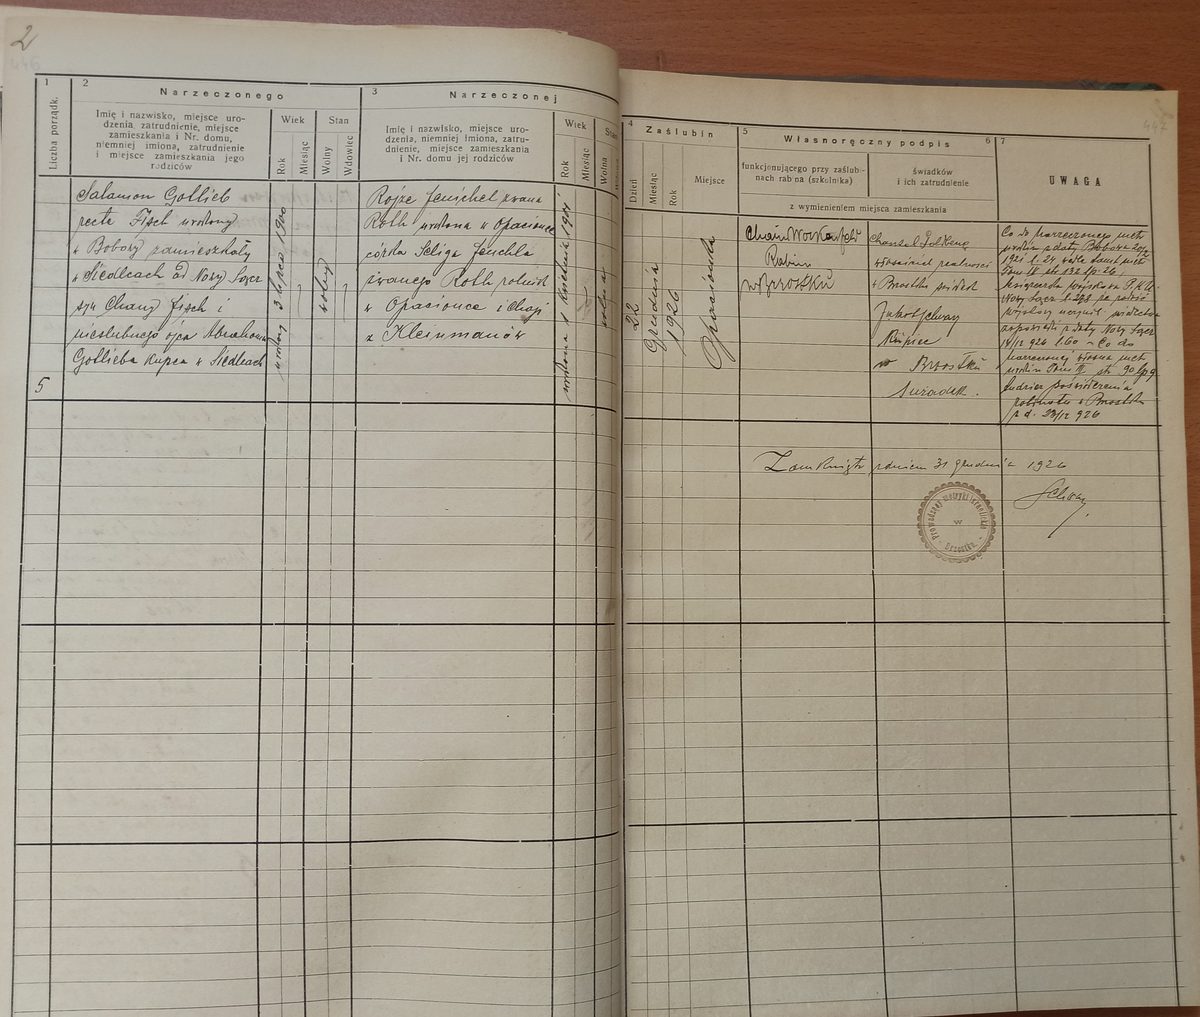 2
446
1
2
Narzeczonego
Liczba porządk.
Imię i nazwisko, miejsce uro-
dzenia, zatrudnienie, miejsce
zamieszkania i Nr. domu,
niemniej imiona, zatrudnienie
i miejsce zamieszkania jego
rodziców
Wiek
Stan
Rok
Miesiąc
Wolny
Wdowiec
3
Narzeczonej
Imię i nazwisko, miejsce uro-
dzenia, niemniej imiona, zatru-
dnienie, miejsce zamieszkania
i Nr. domu jej rodziców
Wiek
Stan
Rok
Miesiąc
Wolna
4
Zaślubin
Dzień
Miesiąc
Rok
Miejsce
5
Własnoręczny podpis
6
funkcjonującego przy zaślubi-
nach rabina (szkolnika)
świadków
i ich zatrudnienie
z wymienieniem miejsca zamieszkania
7
447
UWAGA
5
Salamon Gottlieb
recte Fisch urodzony
w Bobowy zamieszkały
w Siedlcach ad Nowy Sącz
syn Chany Fisch i
nieślubnego ojca Abrahama
Gottlieba kupca w Siedlcach
urodzony 3 lipca 1900
wolny
Rojze Fenichel zwana
Roth urodzona w Opacionce
córka Seliga Fenichla
zwanego Roth rolnik
w Opacionce i Chaji
z Kleinmanów
urodzona 1 1901
wolna
22
Grudnia
1926
Opacionka
Chaim
Rabin
w Brzostku
właściciel realności
w Brzostku
Jakob Schwarz
Kupiec
w Brzostku
Świadek.
Co do narzeczonego metr.
urodzin z daty Bobowa
1921 l. 24
Tom IV str. 132 lp. 26,
wojskowa P.K.U.
Nowy Sącz
zapowiedzi z daty Nowy Sącz
14/12 926 l. 60 – Co do
narzeczonej własna metr.
urodzin Tom III str. 90 lp 9
tudzież poświadczenia
rabinatu w Brzostku
z d. 23/12 926
Zamknięto z dniem 31 grudnia 1926
Schwarz
Prowadzący metryki izraelickie
w
Brzostku